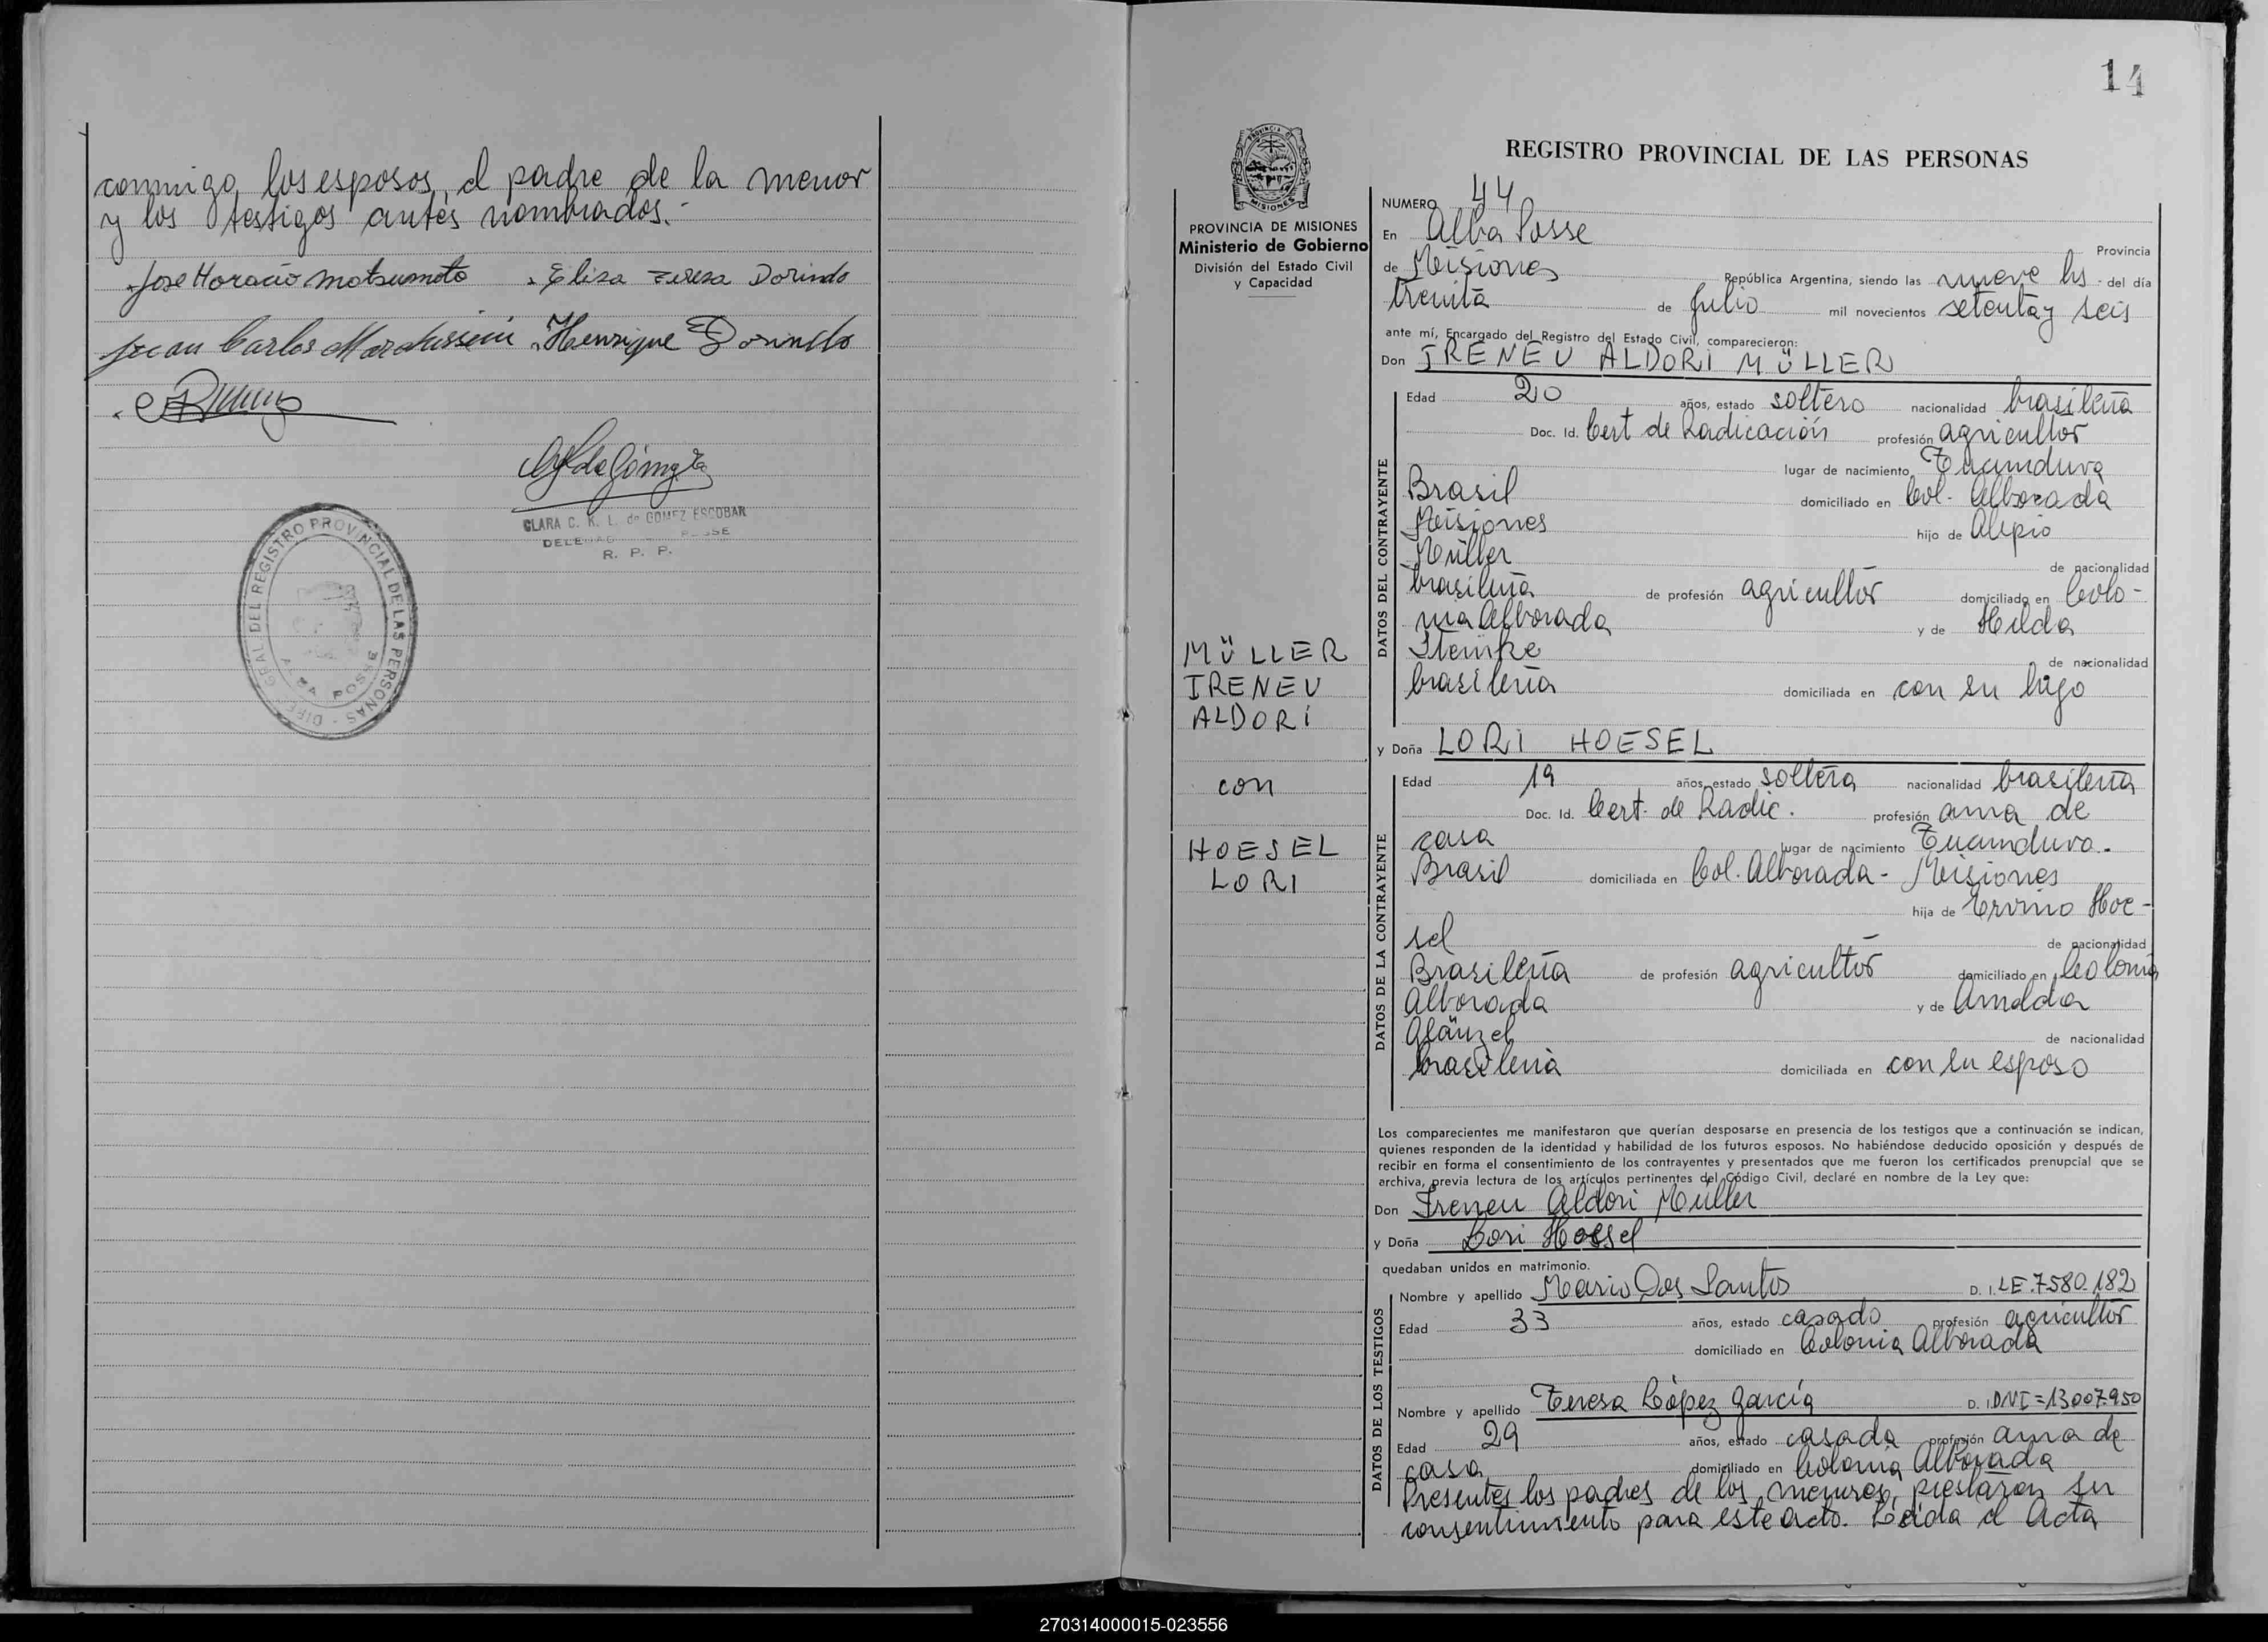 conmigo, los esposos, el padre de la menor
y los testigos antes nombrados.-
Jose Horacio Matsumoto Elisa Teresa Dorindo
Juan Carlos Henrique Dorindo
CLARA C. K. L. de GOMEZ ESCOBAR
R. P. P.
REGISTRO PROVINCIAL DE LAS PERSONAS
ALBA POSSE
14
REGISTRO PROVINCIAL DE LAS PERSONAS
PROVINCIA DE MISIONES
Ministerio de Gobierno
División del Estado Civil
y Capacidad
MÜLLER
IRENEU
ALDORI
con
HOESEL
LORI
NUMERO 44
En Alba Posse
Provincia
de Misiones República Argentina, siendo las nueve hs. del día
treinta de Julio mil novecientos setenta y seis
ante mí, Encargado del Registro del Estado Civil, comparecieron:
Don IRENEU ALDORI MÜLLER
DATOS DEL CONTRAYENTE
Edad 20 años, estado soltero nacionalidad brasileña
Doc. Id. Cert de Radicación profesión agricultor
lugar de nacimiento Tucunduva
Brasil domiciliado en Col. Alborada
Misiones hijo de Alipio
Müller de nacionalidad
brasileña de profesión agricultor domiciliado en Colo-
nia Alborada y de Hilda
Steinke de nacionalidad
brasileña domiciliada en con su hijo
y Doña LORI HOESEL
DATOS DE LA CONTRAYENTE
Edad 19 años, estado soltera nacionalidad brasileña
Doc. Id. Cert. de Radic. profesión ama de
casa lugar de nacimiento Tucunduva.
Brasil domiciliada en Col. Alborada - Misiones
hija de Ervino Hoe-
sel de nacionalidad
Brasileña de profesión agricultor domiciliado en Colonia
Alborada y de Amalda
Glänzel de nacionalidad
brasileña domiciliada en con su esposo
Los comparecientes me manifestaron que querían desposarse en presencia de los testigos que a continuación se indican,
quienes responden de la identidad y habilidad de los futuros esposos. No habiéndose deducido oposición y después de
recibir en forma el consentimiento de los contrayentes y presentados que me fueron los certificados prenupcial que se
archiva, previa lectura de los artículos pertinentes del Código Civil, declaré en nombre de la Ley que:
Don Ireneu Aldori Müller
y Doña Lori Hoesel
quedaban unidos en matrimonio.
DATOS DE LOS TESTIGOS
Nombre y apellido Mario Dos Santos D. I. LE.7580.182
Edad 33 años, estado casado profesión agricultor
domiciliado en Colonia Alborada
Nombre y apellido Teresa López García D. I. DNI=13007950
Edad 29 años, estado casada profesión ama de
casa domiciliado en Colonia Alborada
Presentes los padres de los menores, prestaron su
consentimiento para este acto. Leída el Acta
270314000015-023556